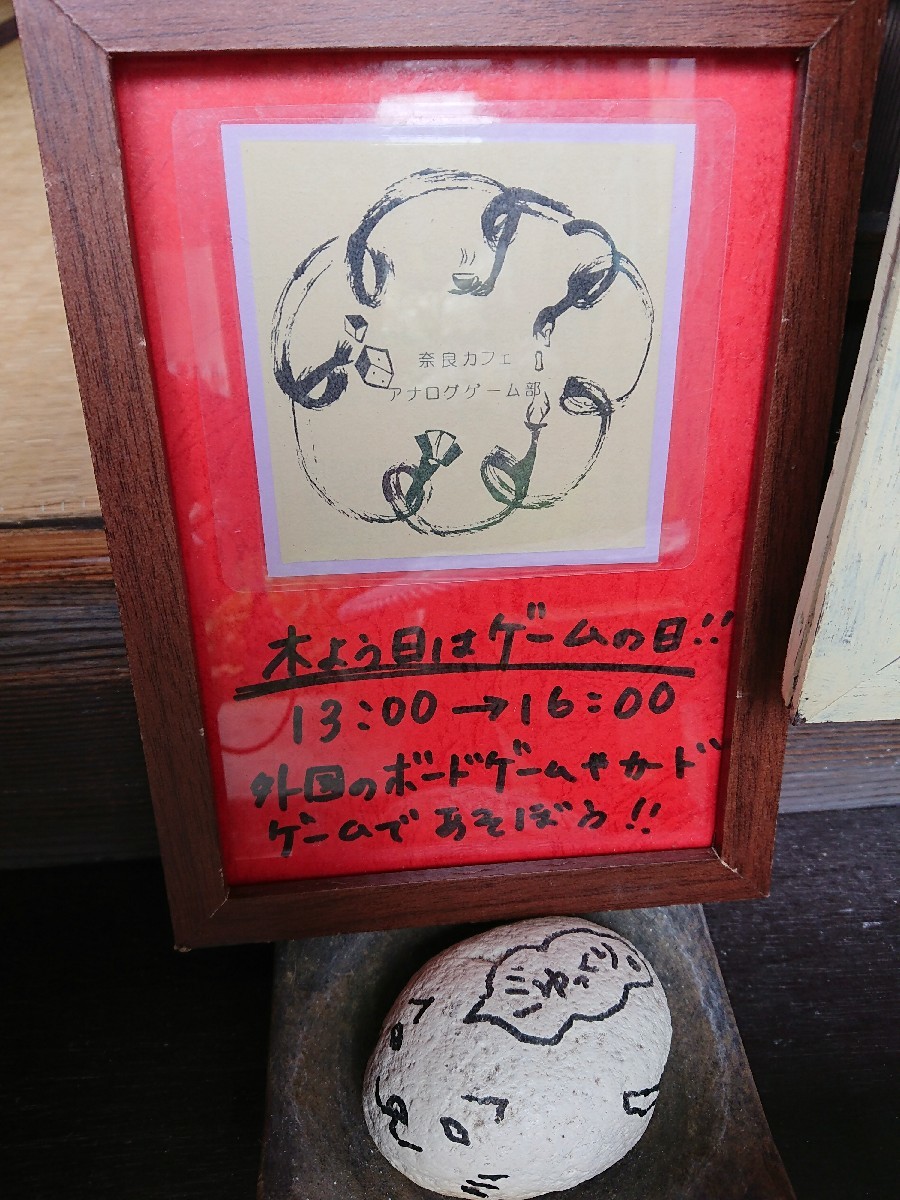 奈良カフェ
アナログゲーム部
木よう日はゲームの日!!
13:00→16:00
外国のボードゲームやカード
ゲームであそぼう!!
ごゆっくり。